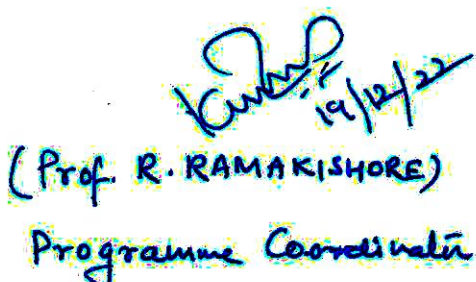 19/12/22
(Prof. R. RAMAKISHORE)
Programme Coordinator